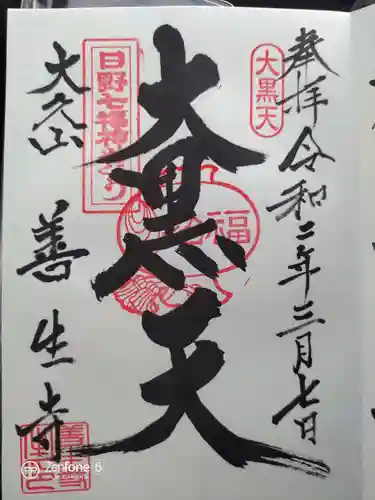 奉拝 令和二年三月七日
大黒天
大黒天
福
日野七福神めぐり
大久山
善生寺
Zenfone 6